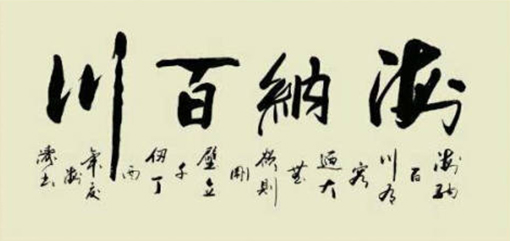 海納百川
海納百川有容迺大無欲則剛壁立千仞丁酉年